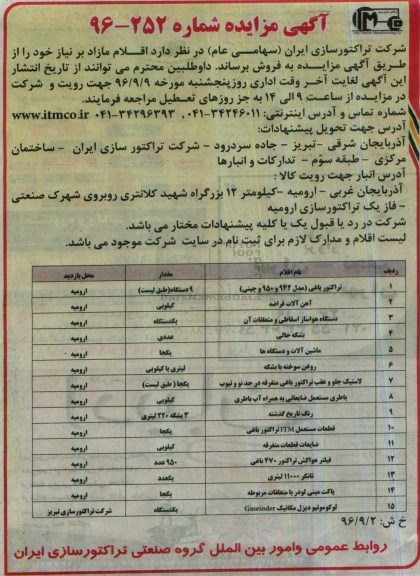 آگهی مزایده شماره ۲۵۲-۹۶
ITMCO
شرکت تراکتورسازی ایران (سهامی عام) در نظر دارد اقلام مازاد بر نیاز خود را از
طریق آگهی مزایده به فروش برساند. داوطلبین محترم می توانند از تاریخ انتشار
این آگهی لغایت آخر وقت اداری روزپنجشنبه مورخه ۹۶/۹/۹ جهت رویت و شرکت
در مزایده از ساعت ۹ الی ۱۴ به جز روزهای تعطیل مراجعه فرمایند.
شماره تماس و آدرس اینترنتی: ۳۴۲۴۶۰۱۱-۰۴۱ ۳۴۲۹۶۳۹۳-۰۴۱ www.itmco.ir
آدرس جهت تحویل پیشنهادات:
آذربایجان شرقی -تبریز - جاده سردرود - شرکت تراکتور سازی ایران - ساختمان
مرکزی - طبقه سوّم - تدارکات و انبارها
آدرس انبار جهت رویت کالا :
آذربایجان غربی - ارومیه -کیلومتر ۱۲ بزرگراه شهید کلانتری روبروی شهرک صنعتی
- فاز یک تراکتورسازی ارومیه
شرکت در رد یا قبول یک یا کلیه پیشنهادات مختار می باشد.
لیست اقلام و مدارک لازم برای ثبت نام در سایت شرکت موجود می باشد.
ردیف نام اقلام مقدار محل بازدید
۱ تراکتور باغی (مدل ۹۴۲ و ۹۵۰ و چینی) ۹ دستگاه(طبق لیست) ارومیه
۲ آهن آلات قراضه کیلویی ارومیه
۳ دستگاه هواساز اسقاطی و متعلقات آن یکدستگاه ارومیه
۴ بشکه خالی عددی ارومیه
۵ ماشین آلات و دستگاه ها یکجا ارومیه
۶ روغن سوخته با بشکه لیتری یا کیلویی ارومیه
۷ لاستیک جلو و عقب تراکتور باغی متفرقه در حد نو و تیوپ یکجا (طبق لیست) ارومیه
۸ باطری مستعمل ضایعاتی به همراه آب باطری کیلویی ارومیه
۹ رنگ تاریخ گذشته ۳ بشکه ۲۲۰ لیتری ارومیه
۱۰ قطعات مستعمل ITM تراکتور باغی یکجا ارومیه
۱۱ ضایعات قطعات متفرقه کیلویی ارومیه
۱۲ فیلتر هواکش تراکتور ۴۷۰ باغی ۹۵۰ عدد ارومیه
۱۳ تانکر ۱۱۰۰۰ لیتری یکعدد ارومیه
۱۴ پاکت مینی لودر با متعلقات مربوطه یکجا ارومیه
۱۵ لوکوموتیو دیزل مکانیک Gmeinder یکدستگاه شرکت تراکتورسازی تبریز
خ ش: ۹۶/۹/۲
روابط عمومی وامور بین الملل گروه صنعتی تراکتورسازی ایران